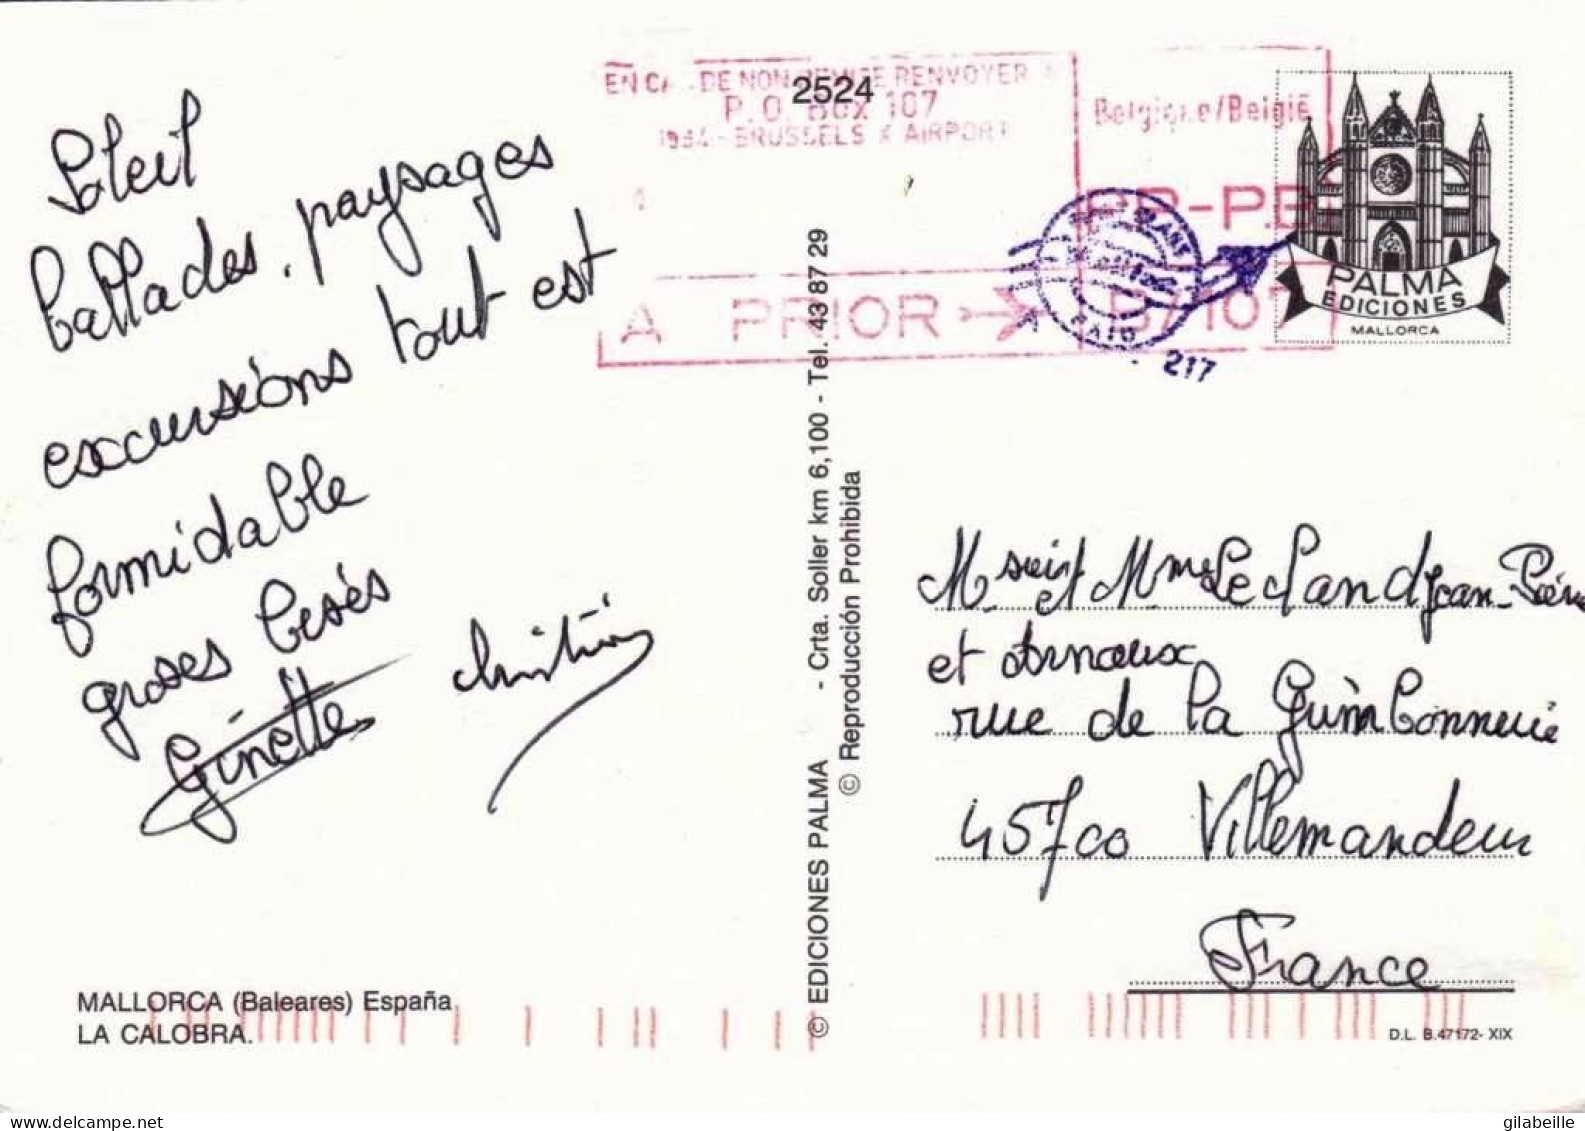 Soleil
ballades, paysages
excursions tout est
formidable
groses besés
Ginette Christian
MALLORCA (Baleares) España
LA CALOBRA.
© EDICIONES PALMA - Crta. Soller km 6,100 - Tel. 43 87 29
© Reproducción Prohibida
2524
EN CAS DE NON REMISE RENVOYER A
P.O. Box 107
1934 - BRUSSELS X AIRPORT
Belgique/België
PP-PB
A PRIOR
B/107
PAID
217
PALMA
EDICIONES
MALLORCA
Mr et Mme Le Jean-Pierre
et Arnaux
rue de la Guimbonnerie
45700 Villemandeur
France
D.L. B.47172- XIX
gilabeille